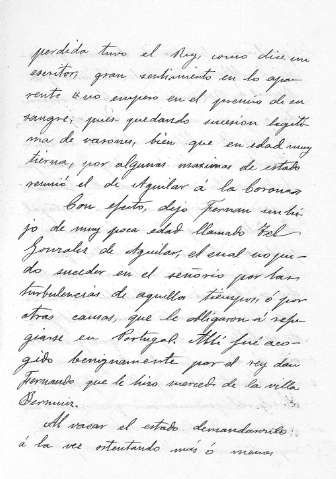 perdida tuvo el Rey, como dice un
escritor, gran sentimiento en lo apa-
rente y no empero en el premio de su
sangre; pues quedando sucesion legiti-
ma de varones, bien que en edad muy
tierna, por algunas maximas de estado
reunió el de Aguilar á la Corona
Con efecto, dejo Fernan un hi-
jo de muy poca edad llamado
Gonzalez de Aguilar, el cual no pu-
do suceder en el señorio por las
turbulencias de aquellos tiempos, ó por
otras causas, que le obligaron á refu-
giarse en Portugal. Allí fué aco-
gido benignamente por el rey don
Fernando que le hizo merced de la villa
Al vacar el estado demandaronlo
á la vez ostentando más ó menos